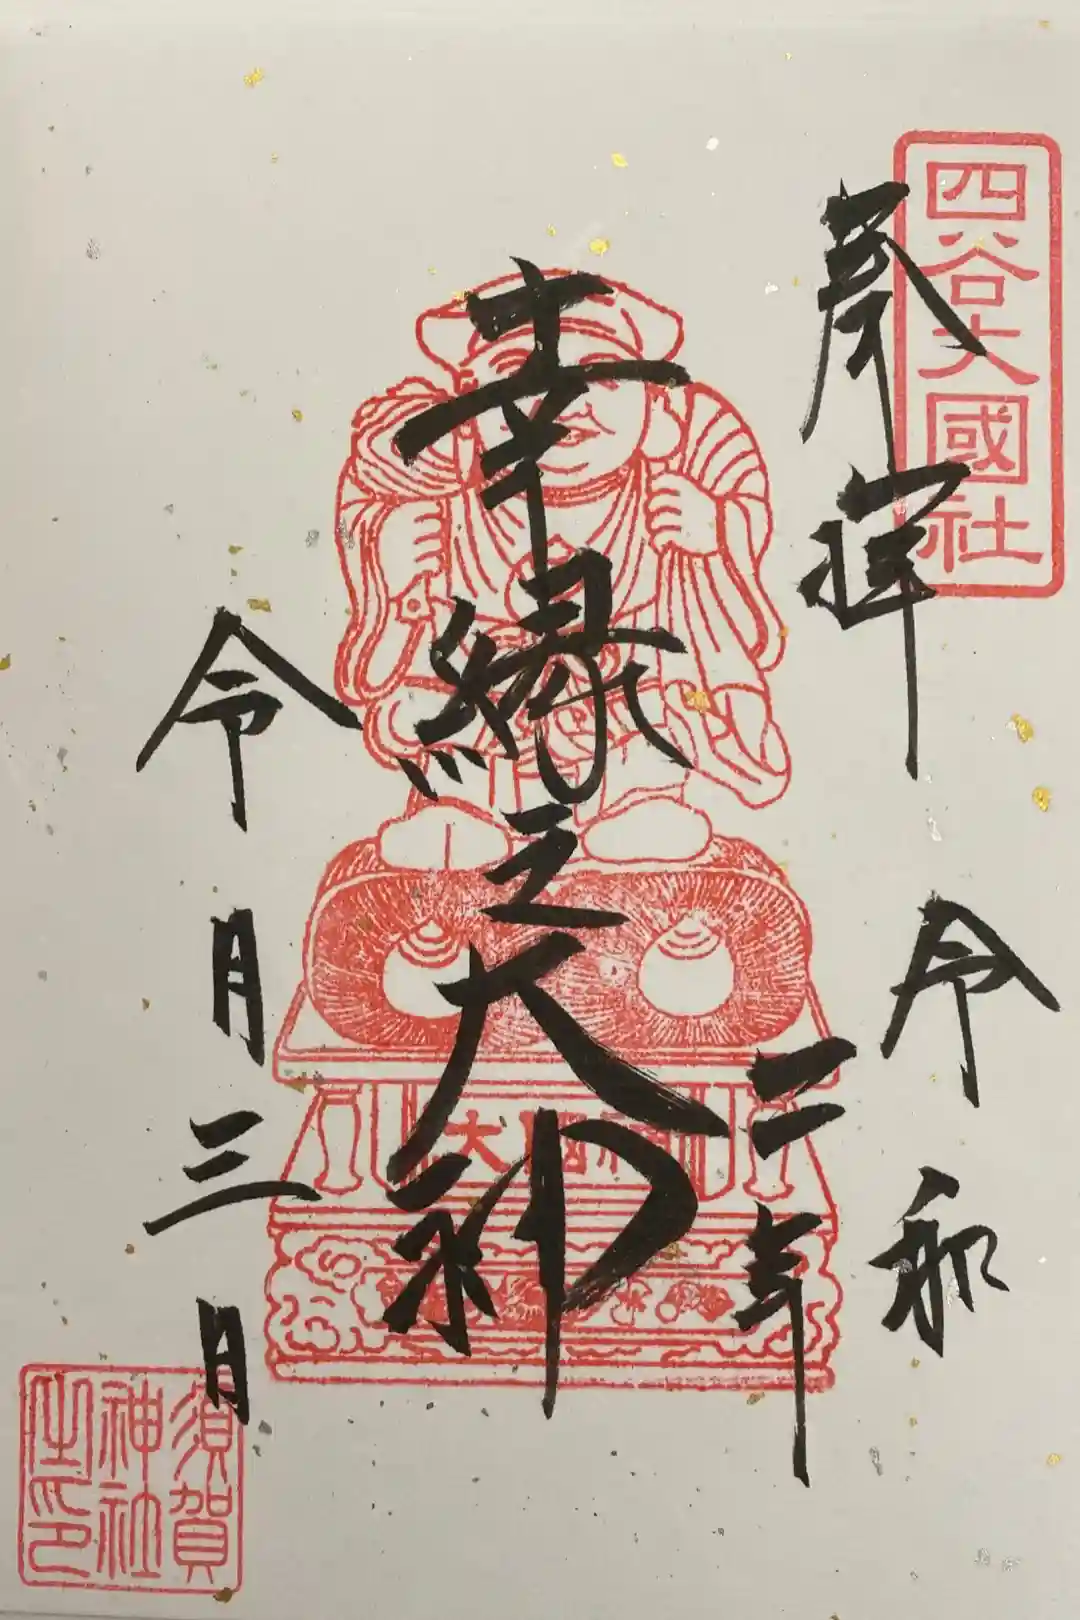 四谷大國社
奉拝
令和
二年
幸縁之大神
令月三日
須賀
神社
之印
大